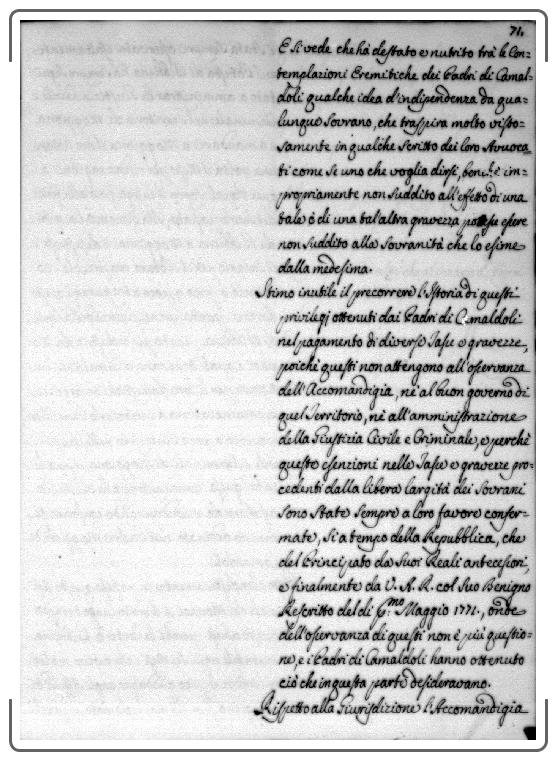 71.
E si vede che ha destato e nutrito trà le Con=
templazioni Eremitiche dei Padri di Camal=
doli qualche idea d'indipendenza da qua=
lunque Sovrano, che traspira molto visto=
samente in qualche scritto dei loro Avvoca
ti come se uno che voglia dirsi, benchè im=
propriamente non suddito all'effetto di una
tale ò di una tal'altra gravezza potesse essere
non suddito alla Sovranità che lo esime
dalla medesima.
Stimo inutile il precorrere l'Istoria di questi
privilegj ottenuti dai Padri di Camaldoli
nel pagamento di diverse Tasse e gravezze,
poichè questi non attengono all'osservanza
dell'Accomandigia, nè al buon governo di
quel Territorio, nè all'amministrazione
della Giustizia Civile e Criminale, e perchè
queste esenzioni nelle Tasse e gravezze pro=
cedenti dalla libera largità dei Sovrani
sono state sempre a loro favore confer=
mate, si a tempo della Repubblica, che
del Principato da Suoi Reali antecessori,
e finalmente da V. A. R. col Suo Benigno
Rescritto del dì 6.mo Maggio 1771., onde
dell'osservanza di questi non è più questio=
ne, e i Padri di Camaldoli hanno ottenuto
ciò che in questa parte desideravano.
Rispetto alla Giurisdizione l'Accomandigia